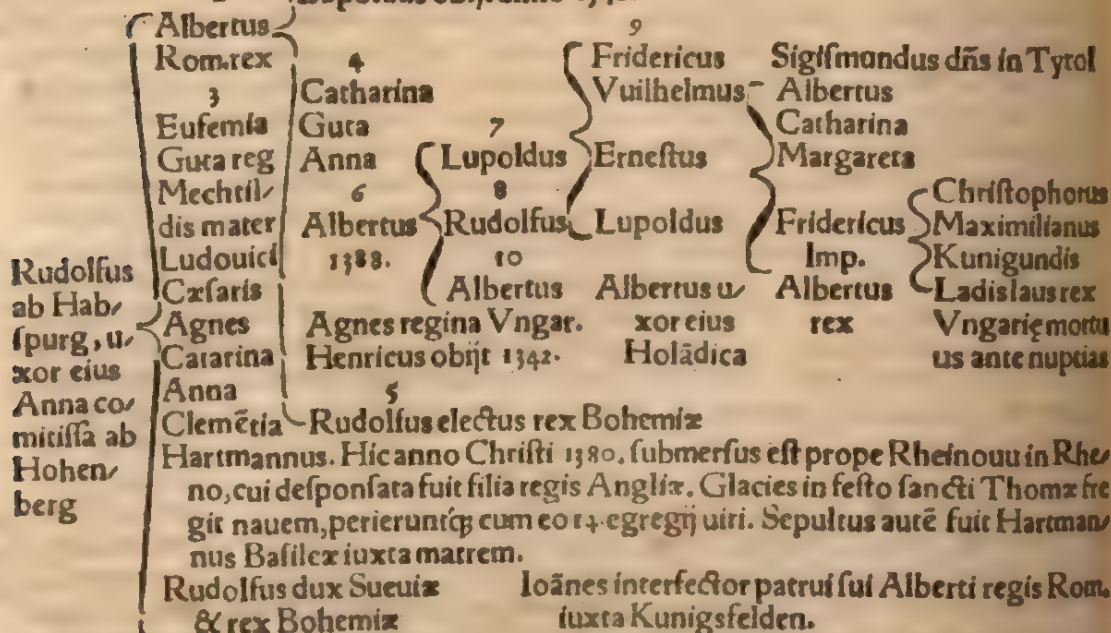 Albertus
Rom.rex
3
Eufemia
Guta reg
Mechtil/
dis mater
Ludouici
Cæsaris
Agnes
Catarina
Anna
Clemẽtia
Rudolfus
ab Hab/
spurg, u/
xor eius
Anna co/
mitissa ab
Hohen/
berg
4
Catharina
Guta
Anna
6
Albertus
1388.
Agnes regina Vngar.
Henricus obijt 1342.
5
Rudolfus electus rex Bohemiæ
7
Lupoldus
8
Rudolfus
10
Albertus
9
Fridericus
Vuilhelmus
Ernestus
Lupoldus
Albertus u/
xor eius
Holãdica
Sigismundus dñs in Tyrol
Albertus
Catharina
Margareta
Fridericus
Imp.
Albertus
rex
Christophorus
Maximilianus
Kunigundis
Ladislaus rex
Vngarię mortu
us ante nuptias
Hartmannus. Hic anno Christi 1380. submersus est prope Rheinouu in Rhe/
no, cui desponsata fuit filia regis Angliæ. Glacies in festo sancti Thomæ fre
git nauem, perieruntq́ꝫ cum eo 14. egregij uiri. Sepultus autẽ fuit Hartman/
nus Basileæ iuxta matrem.
Rudolfus dux Sueuiæ
& rex Bohemiæ
Ioãnes interfector patrui sui Alberti regis Rom.
iuxta Kunigsfelden.